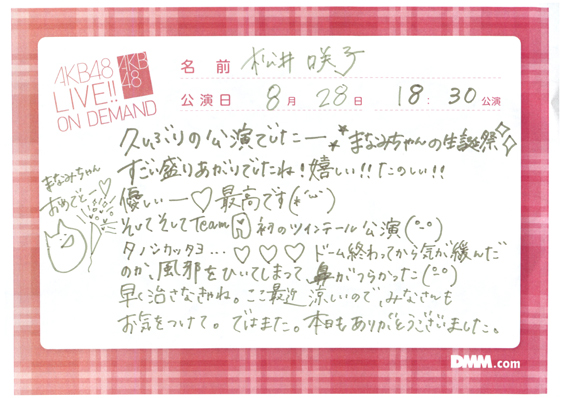 AKB48
LIVE!!
ON DEMAND
AKB
48
名前 松井咲子
公演日 8月 28日 18:30公演
久しぶりの公演でしたー まなみちゃんの生誕祭
すごい盛りあがりでしたね!嬉しい!!たのしい!!
優しいー♡最高です(*'ω'*)
そしてそしてTeam A 初のツインテール公演(°_°)
タノシカッタヨ…♡♡♡ ドーム終わってから気が緩んだ
のか、風邪をひいてしまって、鼻がつらかった(°o°)
早く治さなきゃね。ここ最近涼しいので、みなさんも
お気をつけて。ではまた。本日もありがとうございました。
まなみちゃん
おめでとー♡
DMM.com